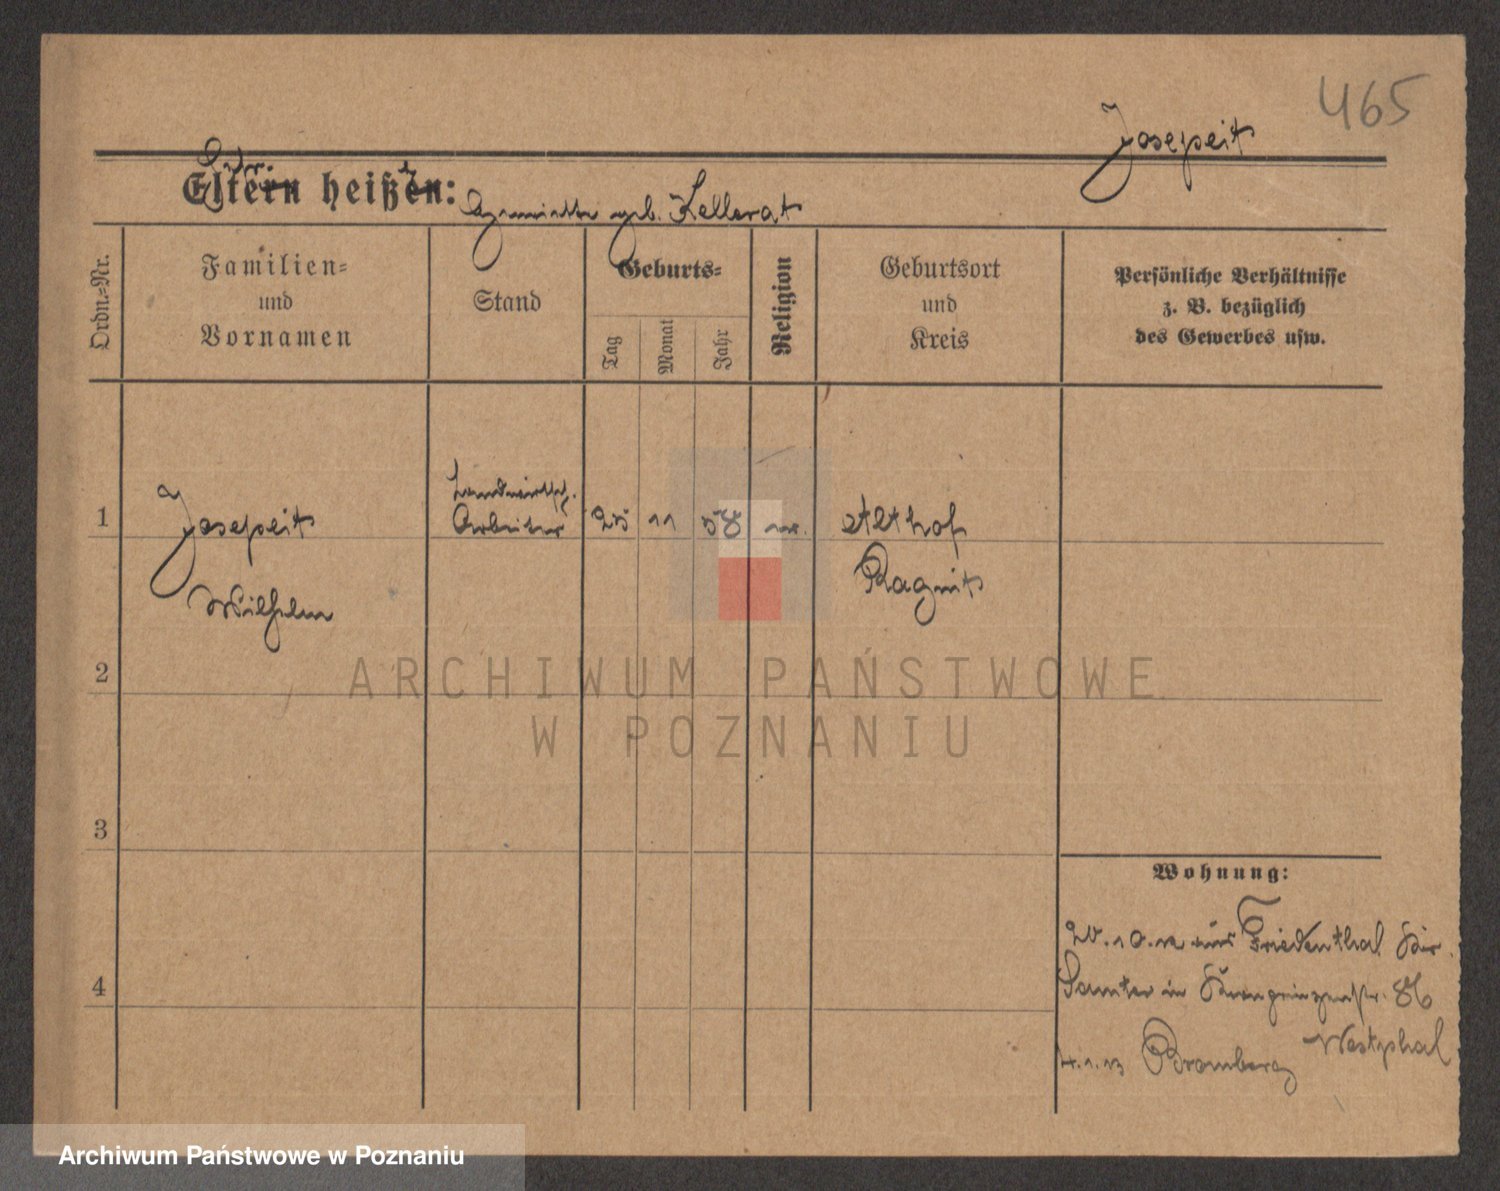 465
Josepeit
Eltern heißen:
geb. Kellerat
Ordn.=Nr.
Familien=
und
Vornamen
Stand
Geburts=
Tag
Monat
Jahr
Religion
Geburtsort
und
Kreis
Persönliche Verhältnisse
z. B. bezüglich
des Gewerbes usw.
1
Josepeit
Wilhelm
Landwirtsch.
Arbeiter
25
11
58
Althof
Ragnit
2
3
4
Wohnung:
20.10.12 aus Friedenthal Kr.
Samter in Kronprinzenstr. 86
Westphal
4.1.13 Bromberg
ARCHIWUM PAŃSTWOWE
W POZNANIU
Archiwum Państwowe w Poznaniu